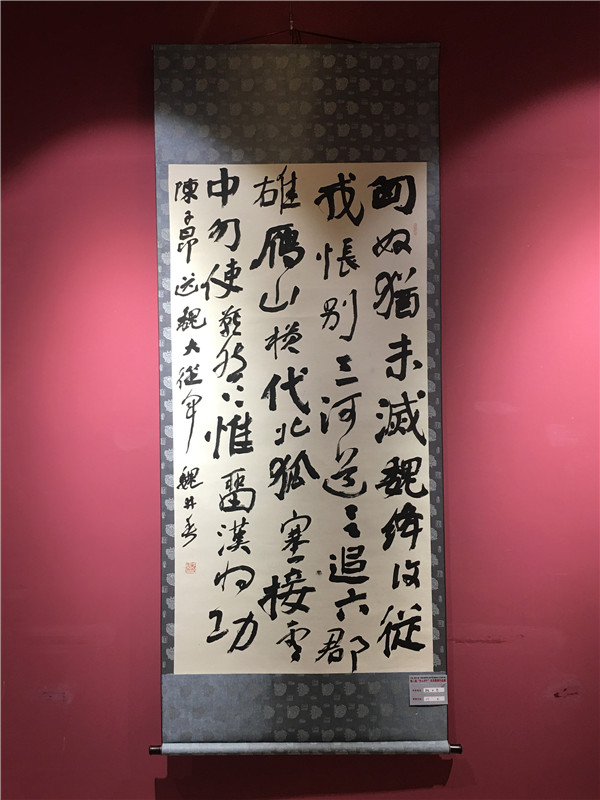 匈奴猶未滅魏絳復從
戎悵別三河道言追六郡
雄鴈山橫代北狐塞接雲
中勿使燕然上惟留漢將功
陳子昂送魏大從軍 魏